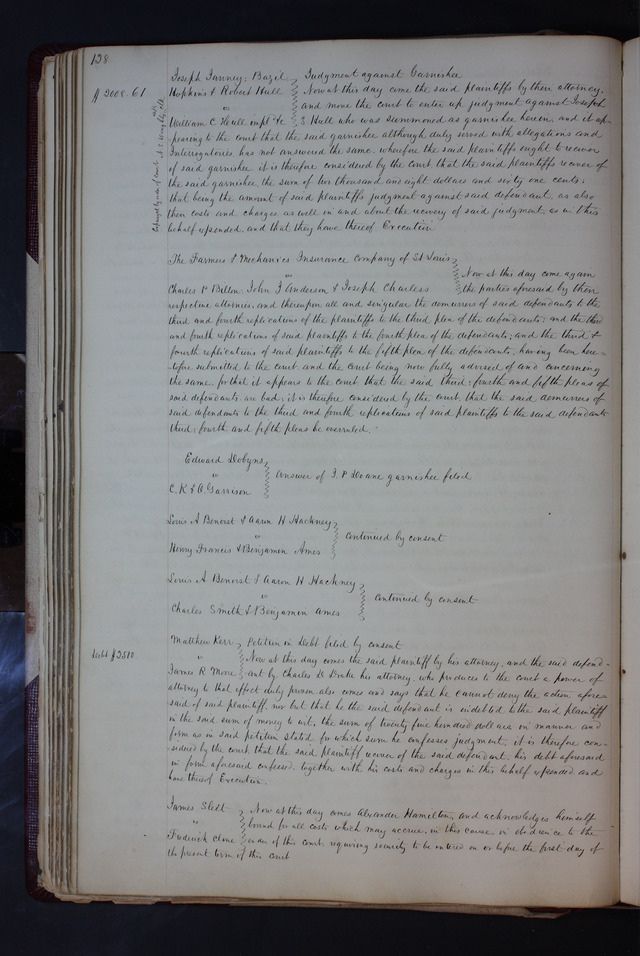 128.
Joseph Tanney; Bazel Judgment against Garnishee
$2008.61 Hopkins & Robert Hull Now at this day come the said plaintiffs by their attorney,
vs and move the court to enter up judgment against Joseph
William C Hull impl &c S Hull who was summoned as garnishee herein, and it ap-
pearing to the court that the said garnishee although duly served with allegations and
Interrogatories, has not answered the same, wherefore the said plaintiffs ought to recover
of said garnishee it is therefore considered by the court that the said plaintiffs recover of
the said garnishee the sum of two thousand and eight dollars and sixty one cents;
that being the amount of said plaintiffs judgment against said defendant, as also
their costs and charges, as well in and about the recovery of said judgment, as in this
behalf expended, and that they have thereof Execution
The Farmers & Mechanics Insurance Company of St Louis
vs Now at this day come again
Charles P Billon, John F Anderson & Joseph Charless the parties aforesaid by their
respective attornies, and thereupon all and singular the demurrers of said defendants to the
third and fourth replications of the plaintiffs to the third plea of the defendants; and the third
and fourth replications of said plaintiffs to the fourth plea of the defendants; and the third &
fourth replications of said plaintiffs to the fifth plea of the defendants, having been here-
-tofore submitted to the court and the court being now fully advised of and concerning
the same, for that it appears to the court that the said third, fourth and fifth pleas of
said defendants are bad; it is therefore considered by the court, that the said demurrers of
said defendants to the third and fourth replications of said plaintiffs to the said defendants
third, fourth and fifth pleas be overruled.
Edward Dobyns
vs answer of J. P Doane garnishee filed
C. K & O. Garrison
Louis A Benoist & Aaron H Hackney
vs continued by consent
Henry Francis & Benjamin Ames
Louis A Benoist & Aaron H Hackney
vs continued by consent
Charles Smith & Benjamin Ames
Matthew Kerr Petition in Debt filed by consent
Debt $2510. vs Now at this day comes the said plaintiff by his attorney, and the said defend-
James R More ant by Charles D Drake his attorney, who produces to the court a power of
attorney to that effect duly proven also comes and says that he cannot deny the action afore-
said of said plaintiff nor but that he the said defendant is indebted to the said plaintiff
in the said sum of money to wit, the sum of twenty five hundred dollars in manner and
form as in said petition stated, for which sum he confesses judgment; it is therefore con-
-sidered by the court that the said plaintiff recover of the said defendant, his debt aforesaid
in form aforesaid confessed, together with his costs and charges in this behalf expended and
have thereof Execution.
James Sleet Now at this day comes Alexander Hamilton, and acknowledges himself
vs bound for all costs which may accrue, in this cause in obedience to the
Frederick Cline order of this court requiring security to be entered on or before the first day of
the present term of this court